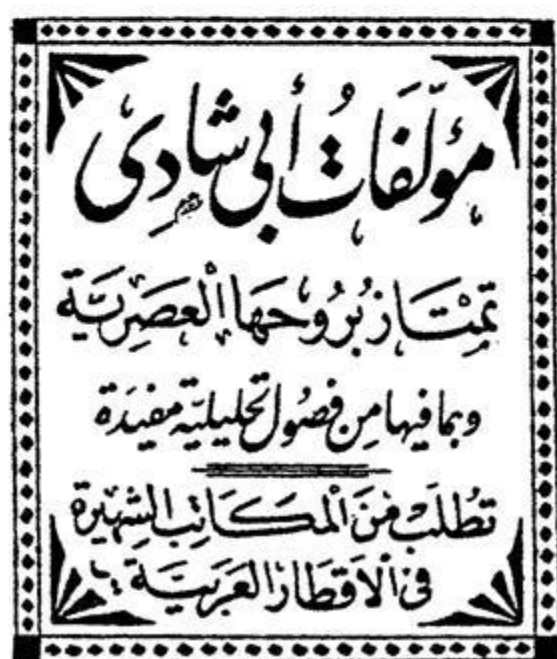 مؤلَّفاتُ أبي شادِي
تمتَاز بُروحهَا العصَرِيَّة
وبما فيها من فصُول تحليليَّة مفيدَة
تطلَبْ منَ المكَاتِب الشهيرة
في الأقطار العَرَبيَّة